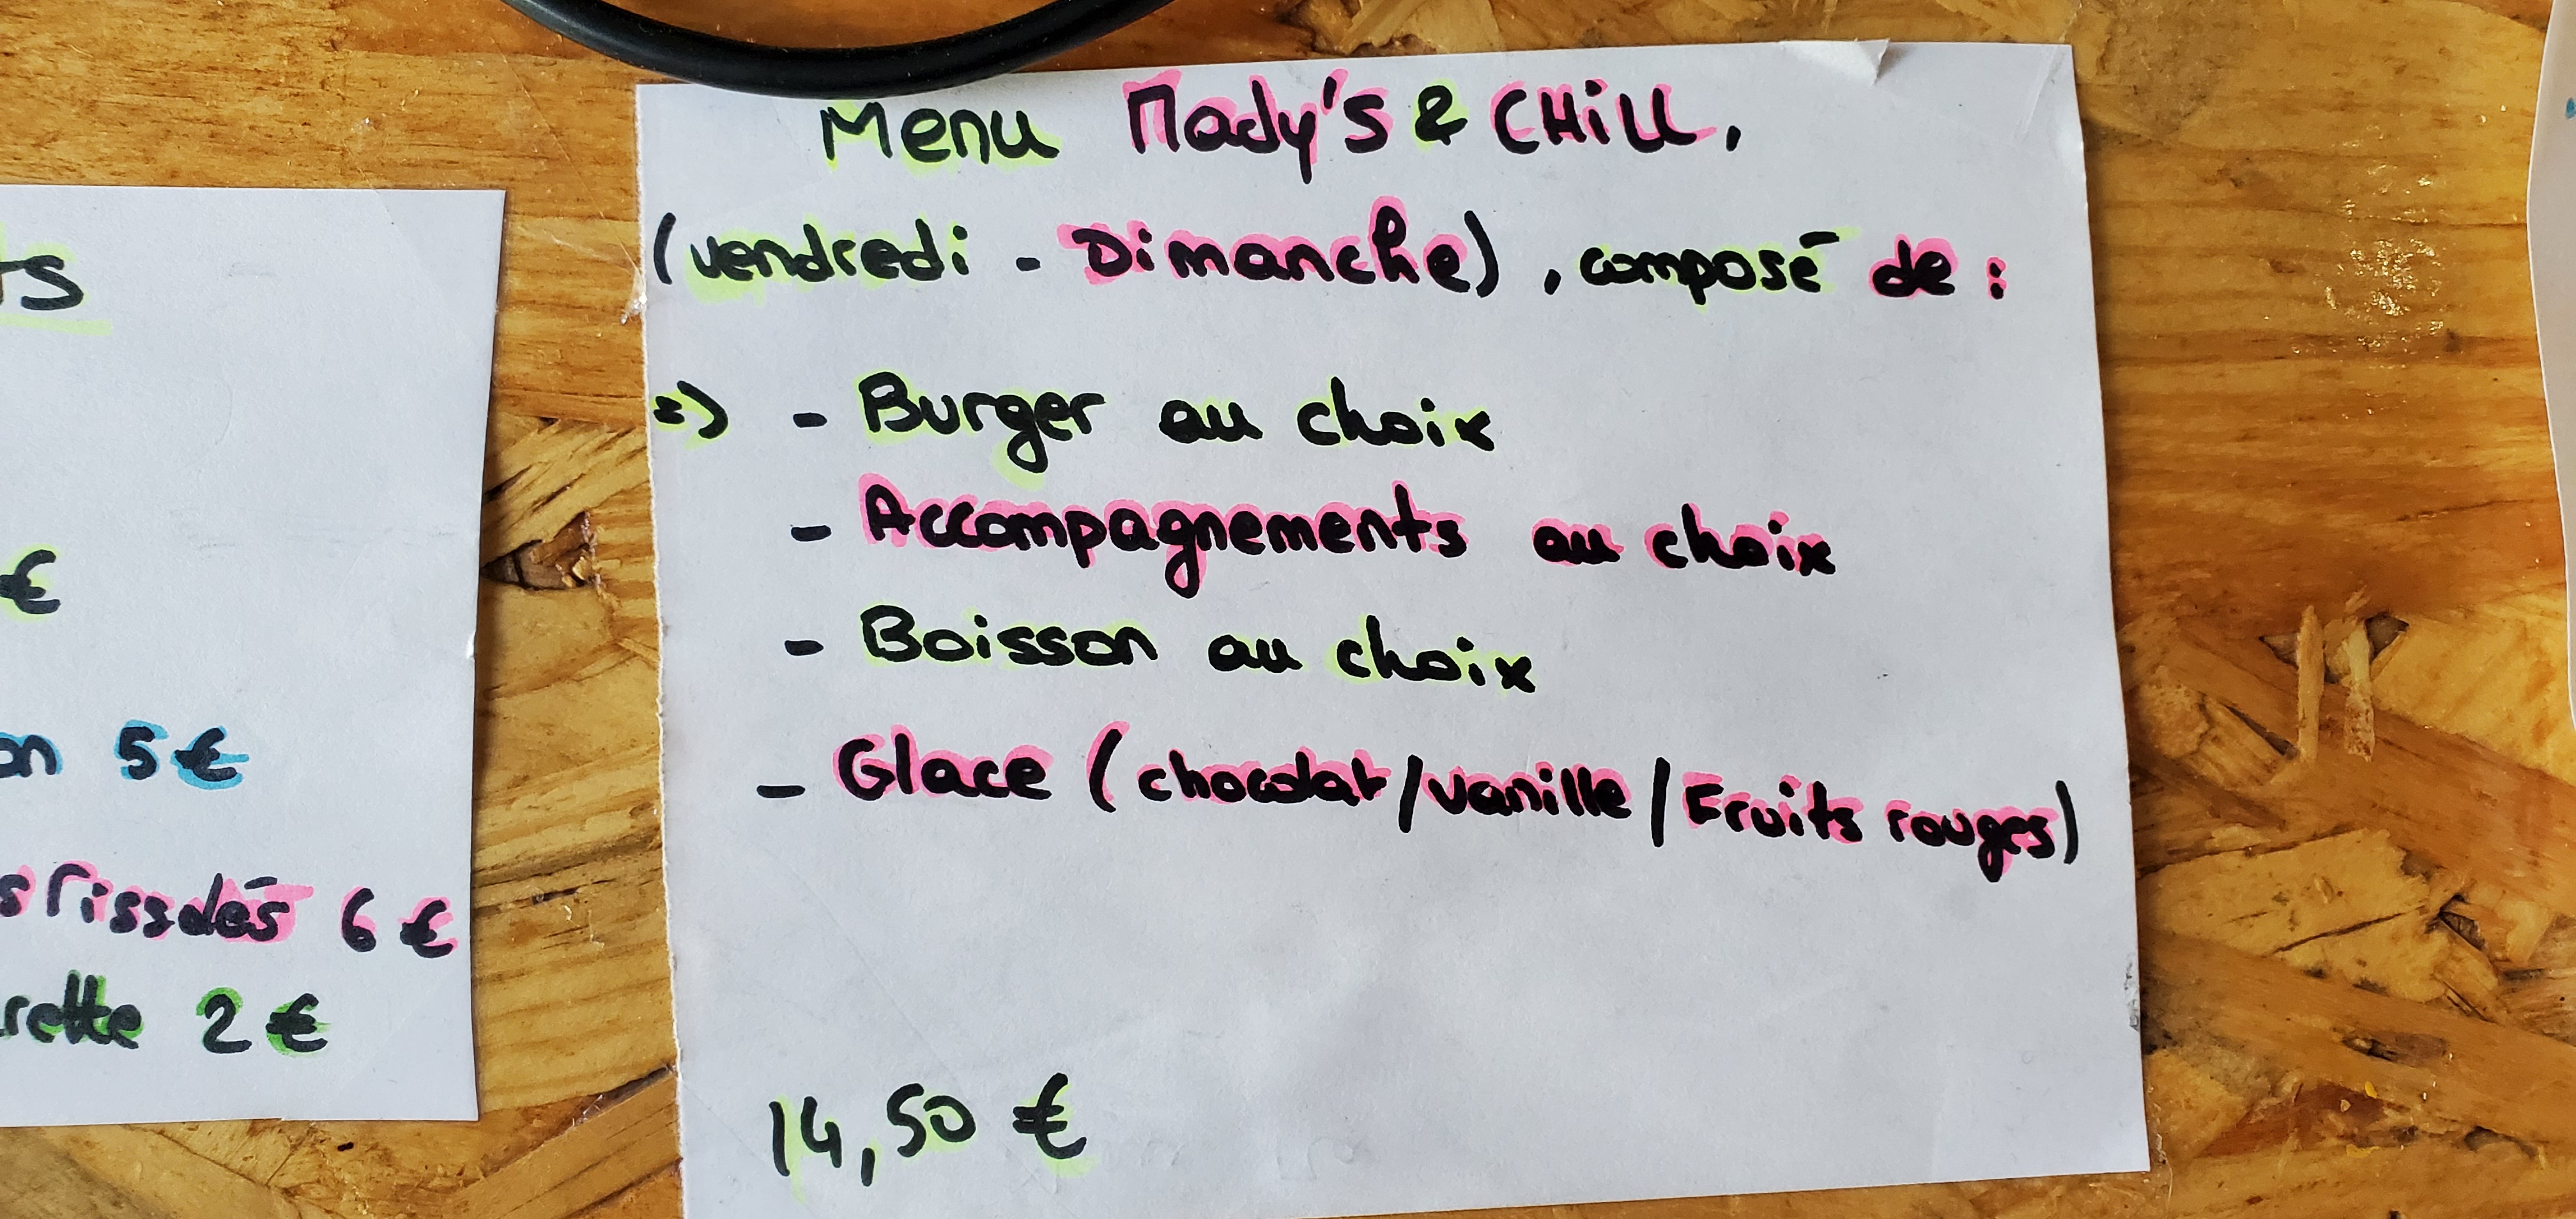 ts
€
on 5€
s rissolés 6 €
rette 2 €
Menu Mady's & CHiLL,
(vendredi - Dimanche), composé de :
=> - Burger au choix
- Accompagnements au choix
- Boisson au choix
- Glace (chocolat/vanille/Fruits rouges)
14,50 €